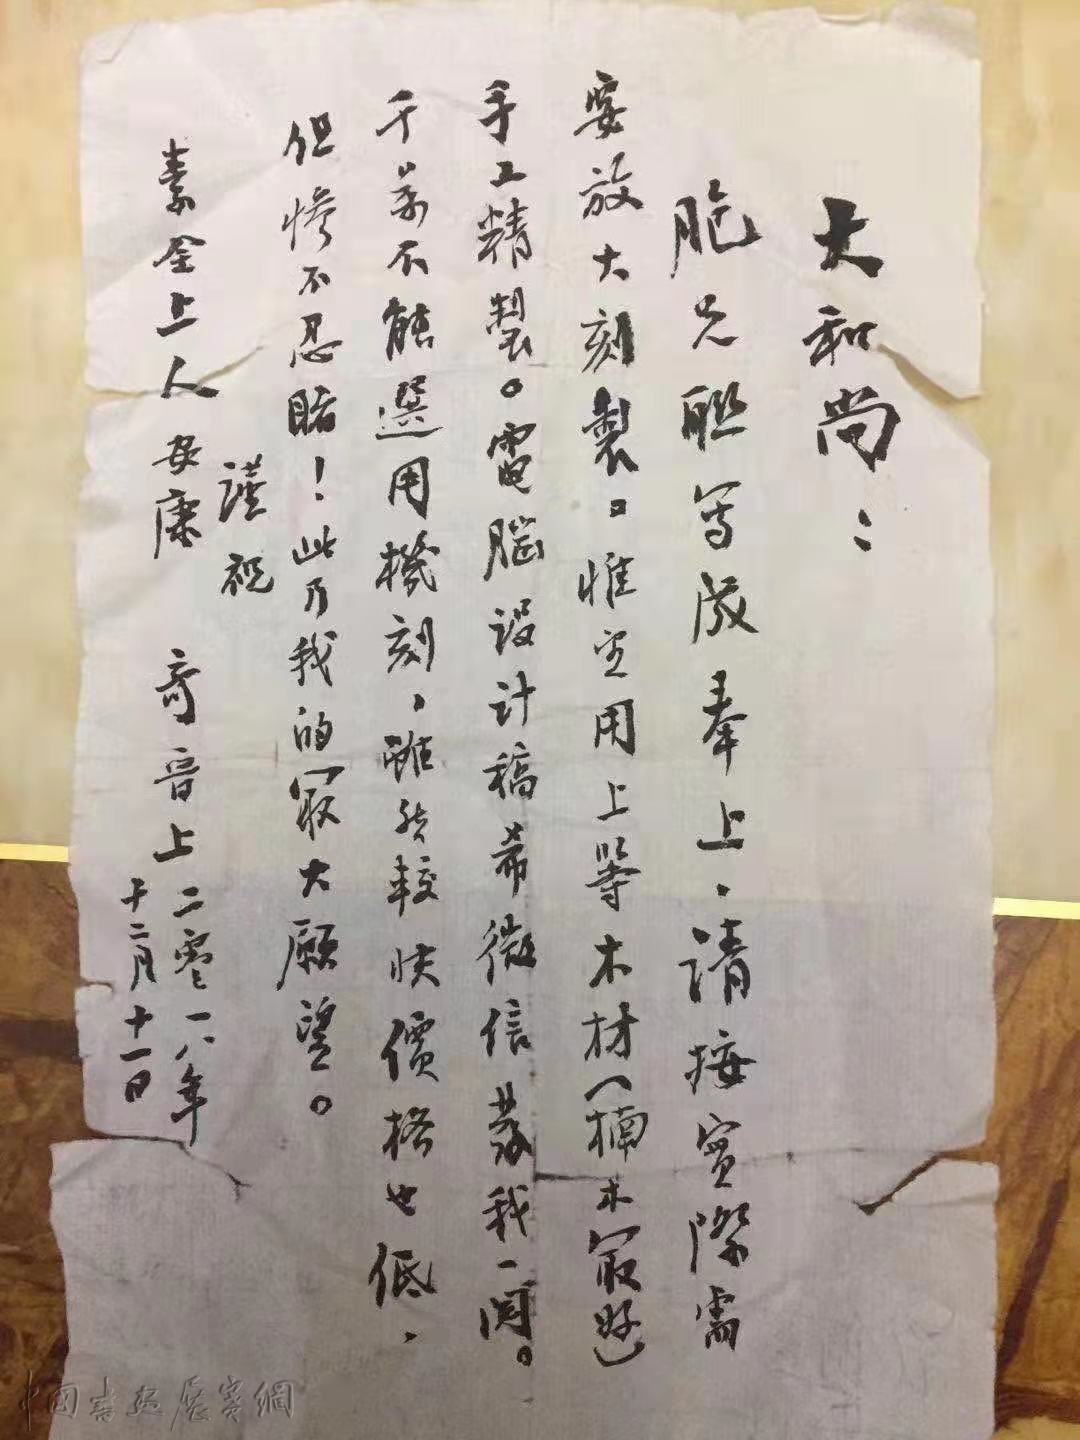 大和尚：
胞兄联写成奉上，请按實際需
要放大刻製。惟宜用上等木材（楠木最好）
手工精製。電腦设计稿希微信发我一阅。
千万不能選用機刻，雖然較快價格也低，
但惨不忍睹！此乃我的最大願望。
謹祝
素全上人安康
奇音上二零一八年
十二月十一日
中国书画展赛網